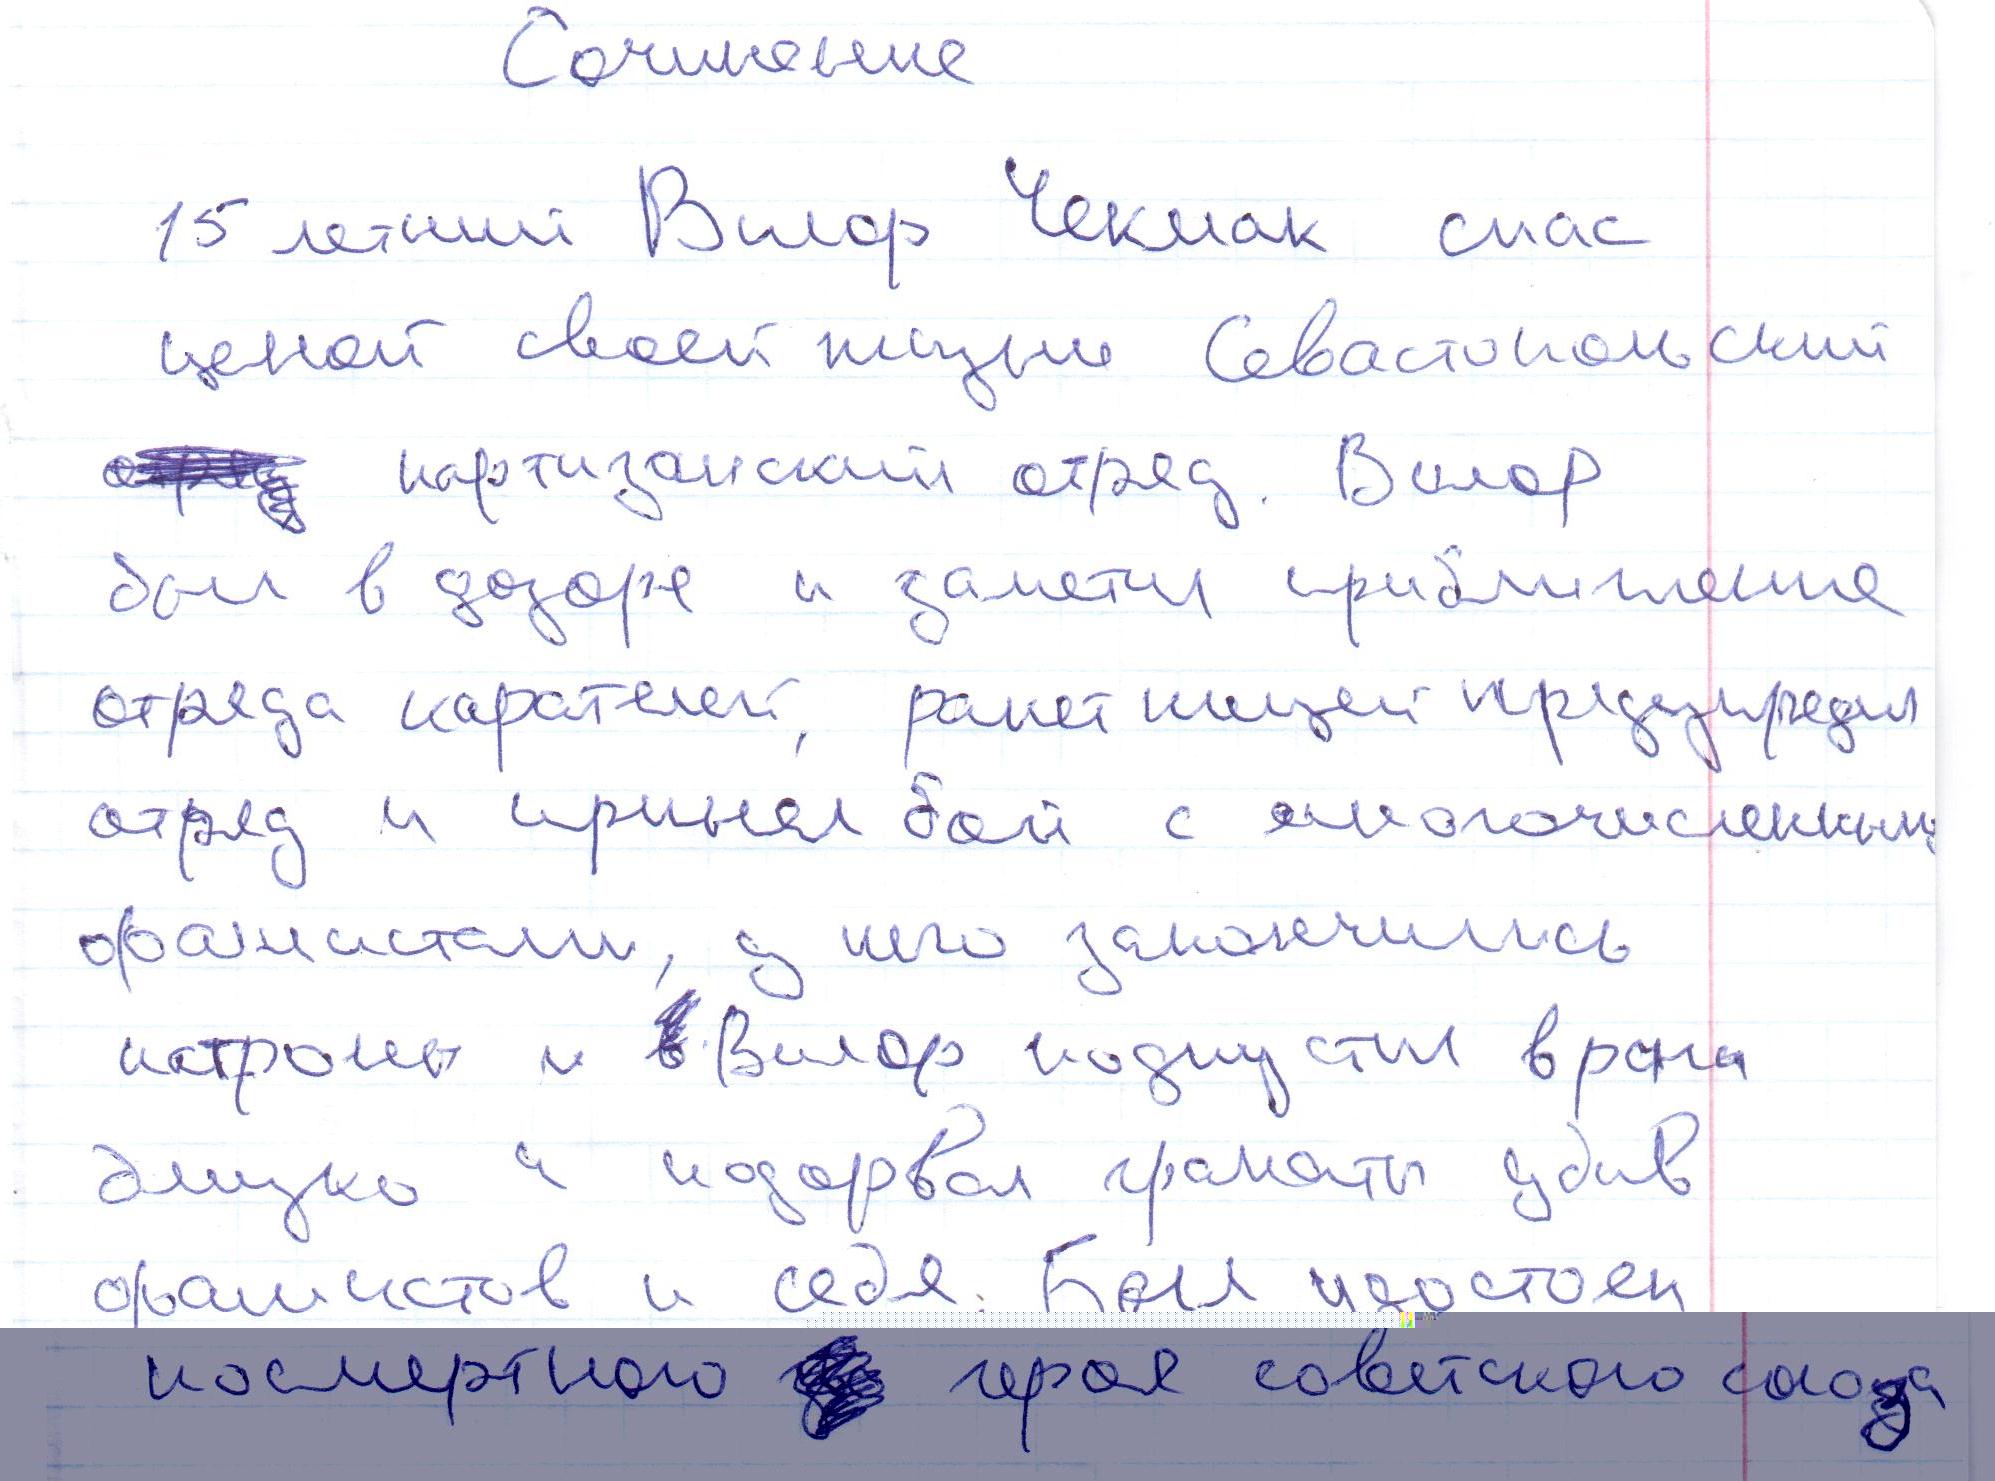 Сочинение
15 летний Вилор Чекмак спас
ценой своей жизни Севастопольский
партизанский отряд. Вилор
был в дозоре и заметил приближение
отряда карателей, ракетницей предупредил
отряд и принял бой с многочисленными
фашистами, у него закончились
патроны и Вилор подпустил врага
близко и подорвал гранаты убив
фашистов и себя. Был удостоен
посмертного героя советского союза